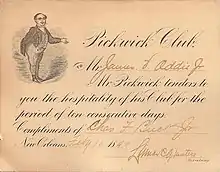 Pickwick Club.
To Mr. James F. Oddie Jr
Mr. Pickwick tenders to
you the hospitality of his Club for the
period of ten consecutive days.
Compliments of Chas F. Buck Jr
New Orleans, 18